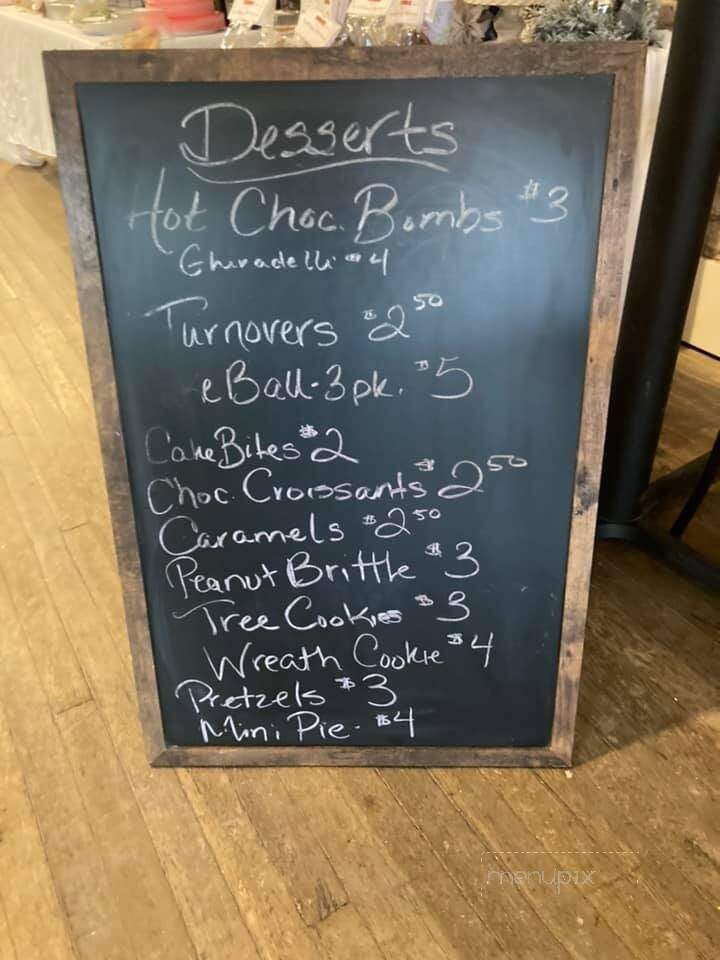 Desserts
Hot Choc. Bombs $3
Ghiradelli $4
Turnovers $2 50
eBall-3pk. $5
Cake Bites $2
Choc. Croissants $2 50
Caramels $2 50
Peanut Brittle $3
Tree Cookies $3
Wreath Cookie $4
Pretzels $3
Mini Pie - $4
menupix